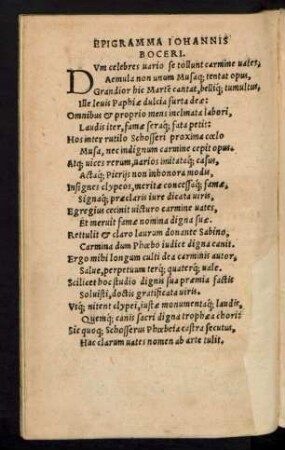 EPIGRAMMA IOHANNIS
BOCERI.
DVm celebres uario se tollunt carmine uates,
Aemula non unum Musaq; tentat opus,
Grandior hic Martē cantat, belliq; tumultus,
Ille leuis Paphiæ dulcia furta deæ:
Omnibus & proprio mens inclinata labori,
Laudis iter, famæ seraq; fata petit:
Hos inter rutilo Schosseri proxima cœlo
Musa, nec indignum carmine cepit opus:
Atq; uices rerum, uarios imitataq; casus,
Actaq; Pierijs non inhonora modis,
Insignes clypeos, meritæ concessaq; famæ,
Signaq; præclaris iure dicata uiris,
Egregium cecinit uicturo carmine uates,
Et meruit famæ nomina digna suæ.
Rettulit & claro laurum donante Sabino,
Carmina dum Phœbo iudice digna canit.
Ergo mihi longum culti dea carminis autor,
Salue, perpetuum terq; quaterq; uale.
Scilicet hoc studio dignis sua præmia factis
Soluisti, doctis gratificata uiris.
Vtq; nitent clypei, iustæ monumentaq; laudis,
Quemq; canit sacri digna trophæa chori:
Sic quoq; Schosserus Phœbeia castra secutus,
Hac clarum uates nomen ab arte tulit.